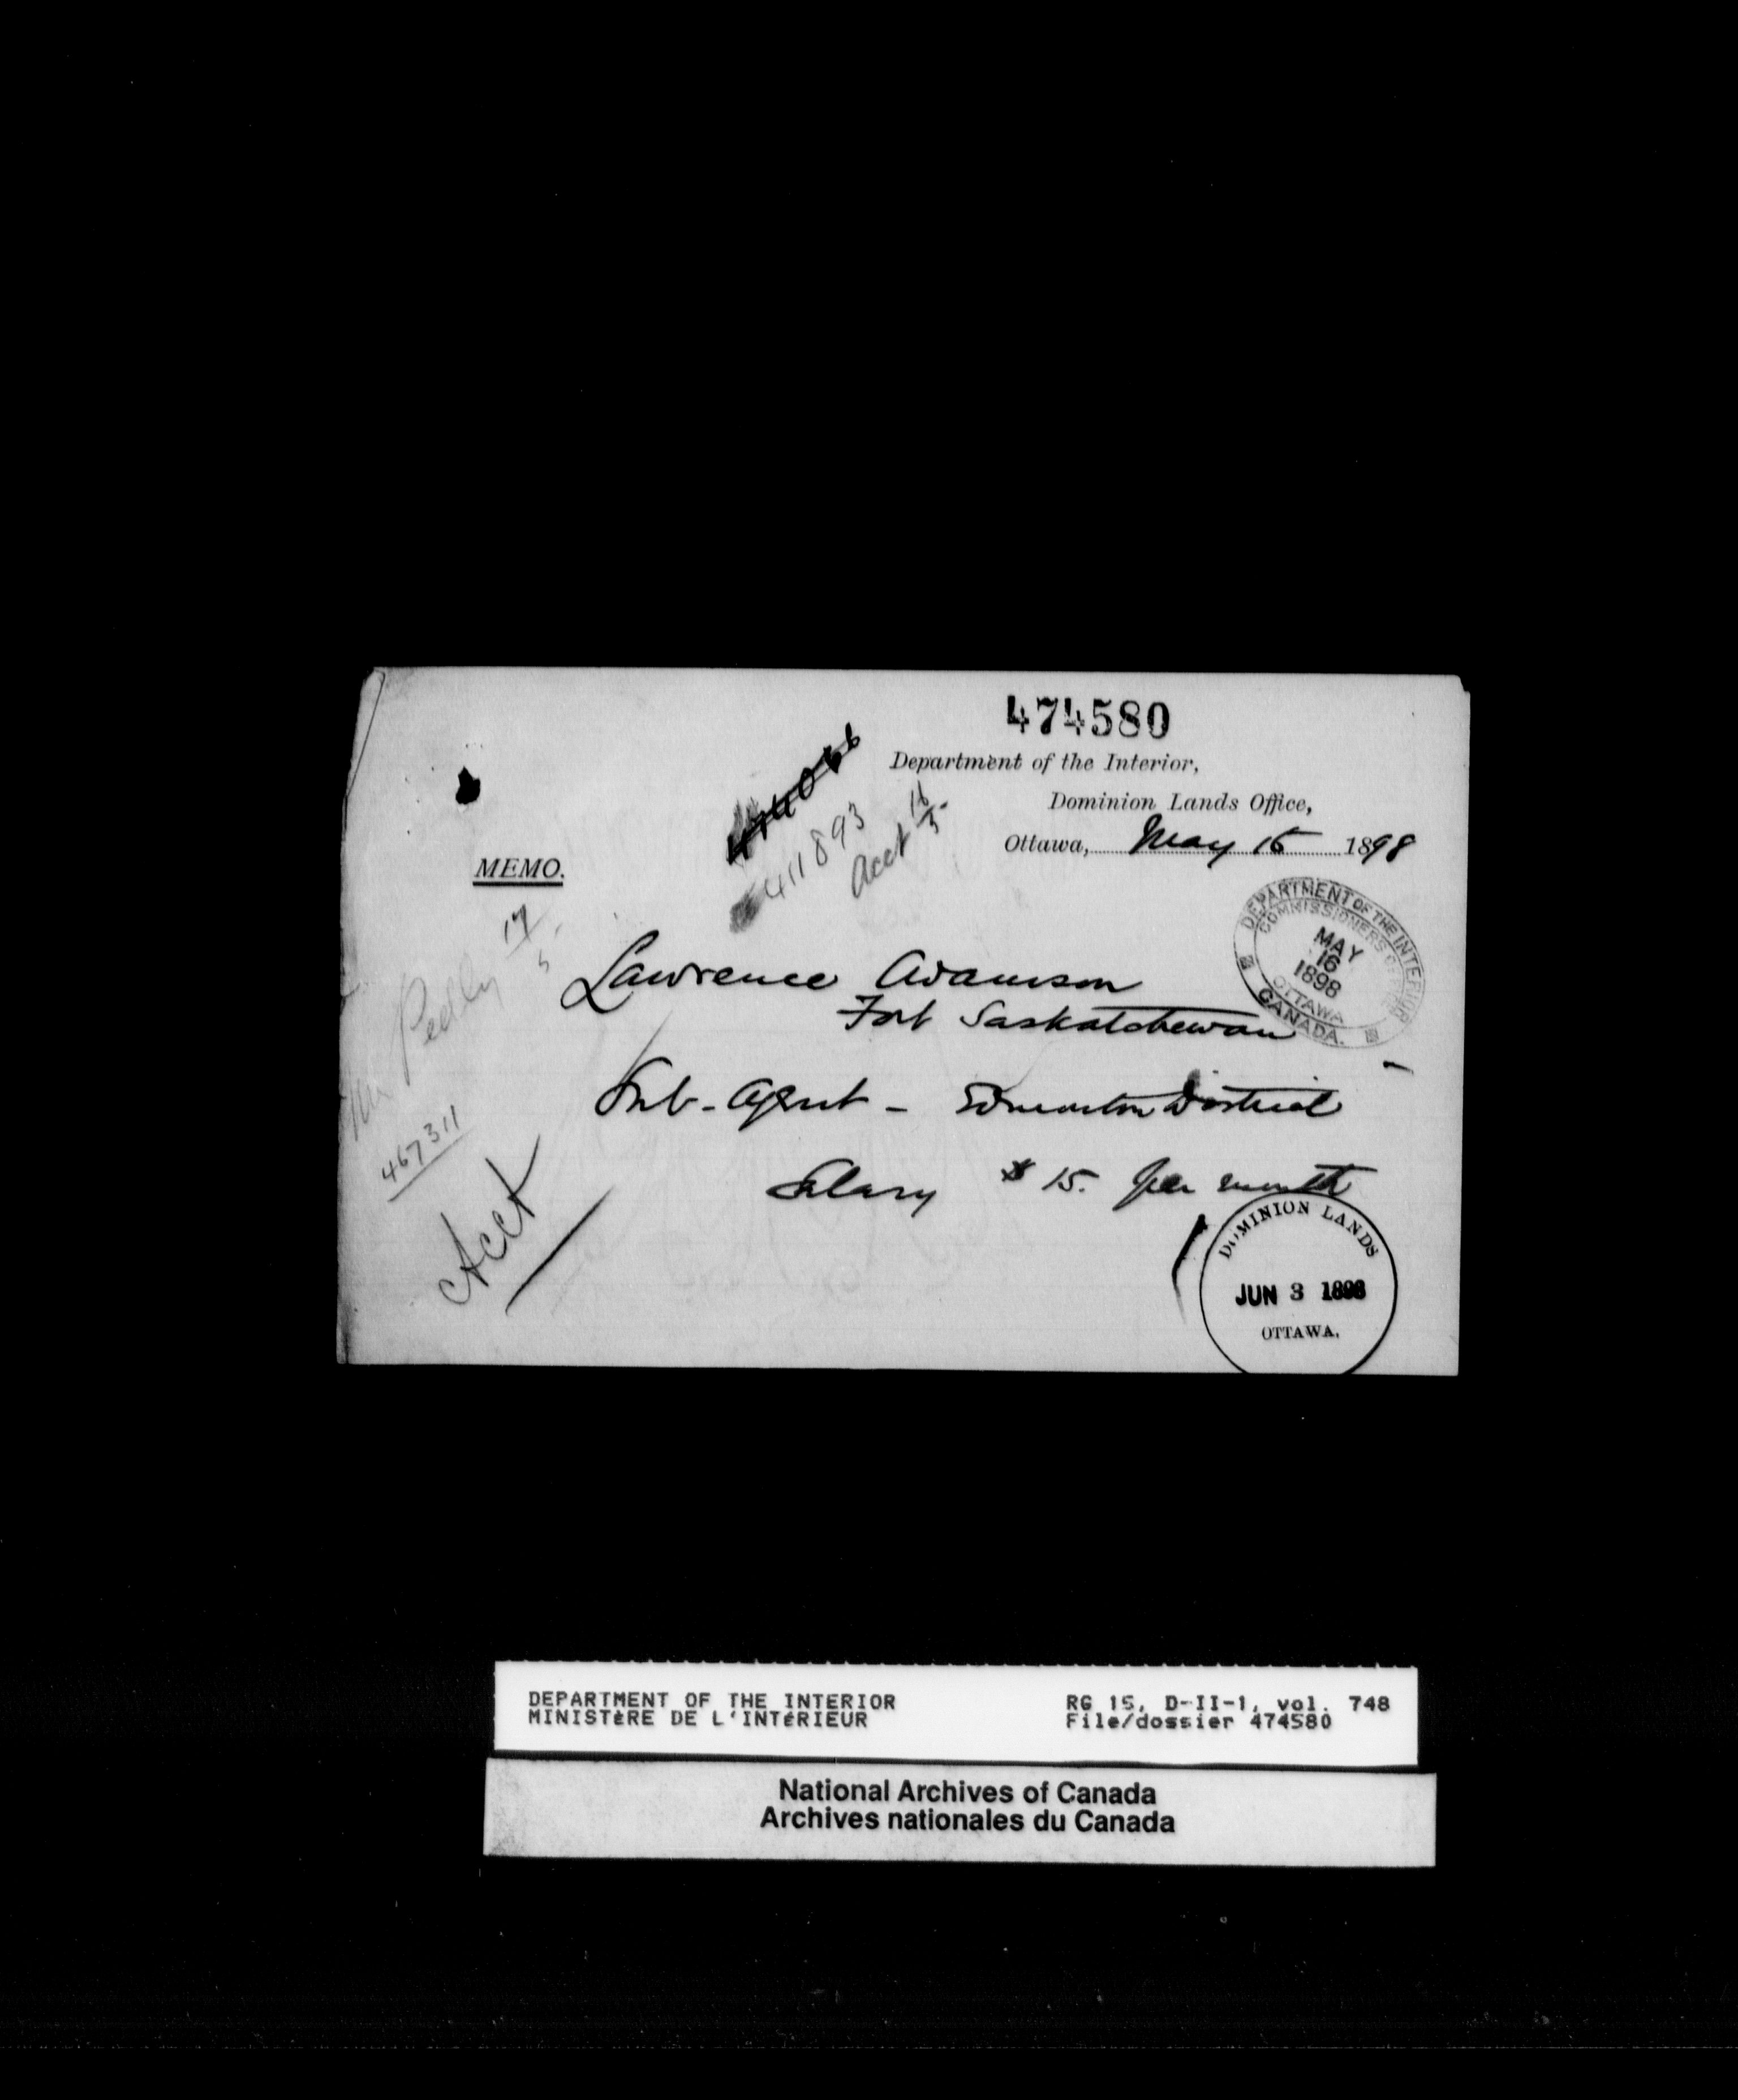 474580
Department of the Interior,
Dominion Lands Office,
Ottawa, May 16 1898
411893
Acct 16/5
MEMO.
17/5
Mr Pedley
DEPARTMENT OF THE INTERIOR
COMMISSIONERS
MAY
16
1898
OTTAWA
CANADA.
Lawrence Adamson
Fort Saskatchewan
Sub-Agent - Edmonton District
467311
Salary $15. per month
Acct
DOMINION LANDS
JUN 3 1898
OTTAWA.
DEPARTMENT OF THE INTERIOR
MINISTÈRE DE L'INTÉRIEUR
RG 15, D-II-1, vol. 748
File/dossier 474580
National Archives of Canada
Archives nationales du Canada